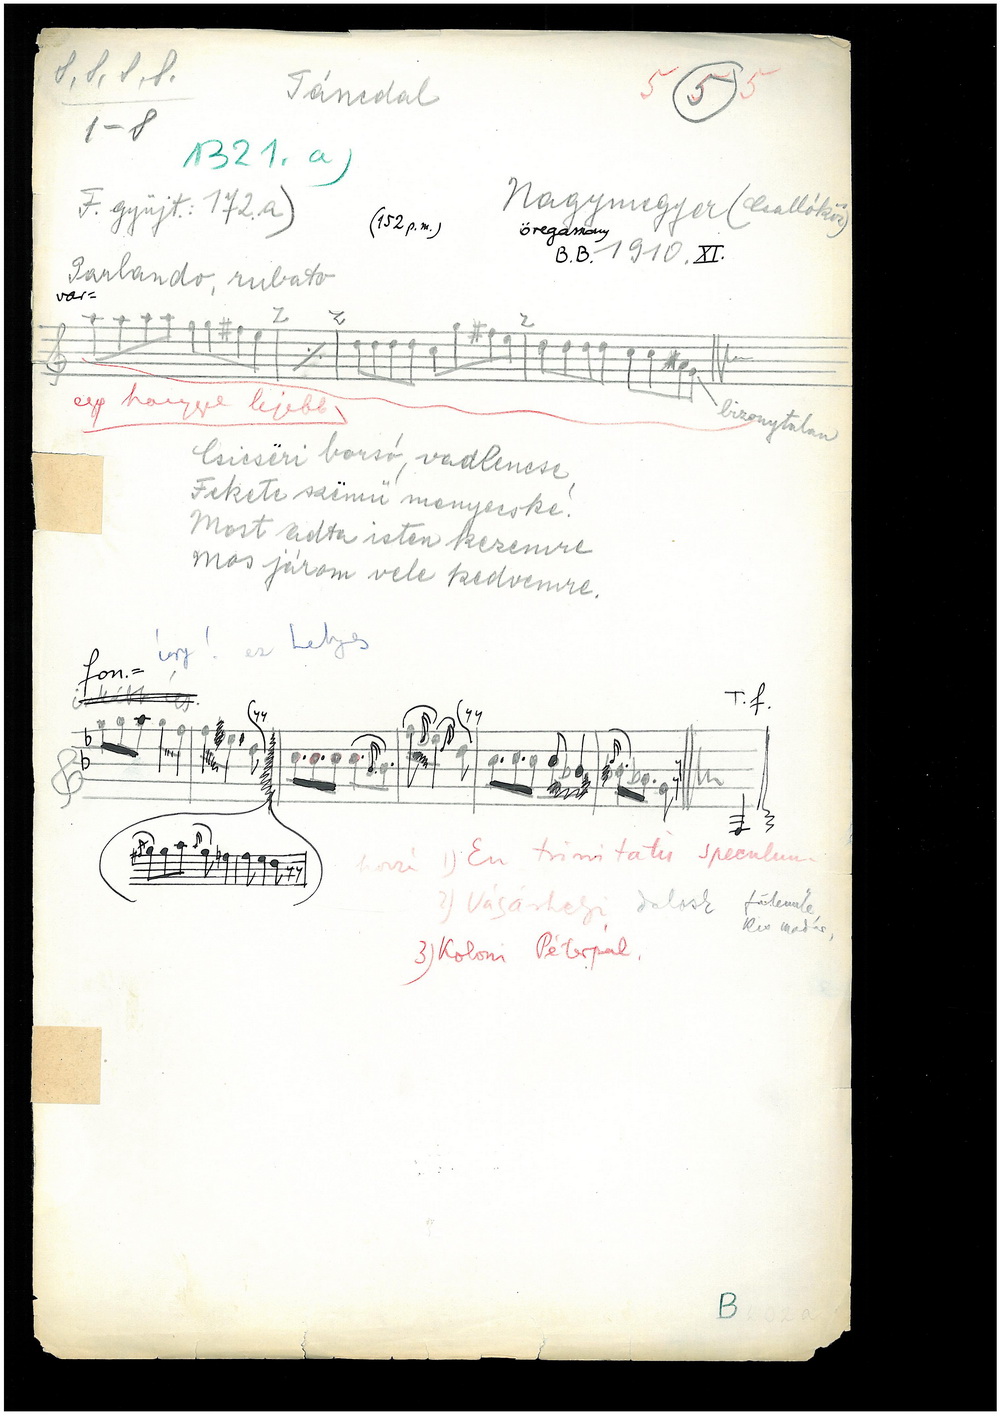 8, 8, 8, 8.
1-8
Táncdal
5 5 5
1321. a)
F. gyüjt.: 172.a)
(152 p.m.)
Nagymegyer (Csallóköz)
öregasszony
B.B. 1910. XI.
Parlando, rubato
var=
egy hanggal lejebb
bizonytalan
Csicseri borsó, vadlencse,
Fekete szömü menyecske!
Most adta isten kezemre
Mos járom vele kedvemre.
így! ez helyes
fon.=
T. f.
hozzá 1) En trinitatis speculum
2) Vásárhelyi dalosk
3) Koloni Péterpál.
B